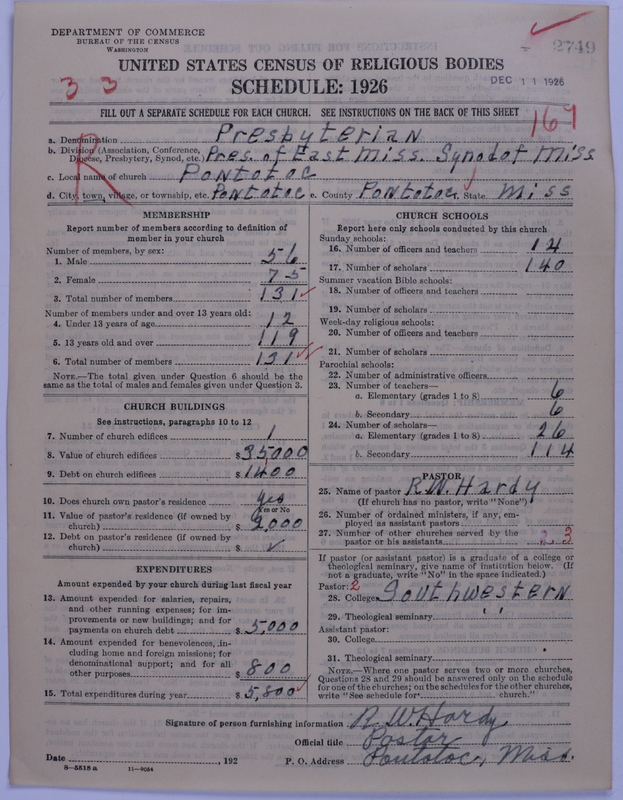 DEPARTMENT OF COMMERCE
BUREAU OF THE CENSUS
WASHINGTON
2749
UNITED STATES CENSUS OF RELIGIOUS BODIES
DEC 11 1926
3 3
SCHEDULE: 1926
FILL OUT A SEPARATE SCHEDULE FOR EACH CHURCH. SEE INSTRUCTIONS ON THE BACK OF THIS SHEET
167
R
a. Denomination Presbyterian
b. Division (Association, Conference, Diocese, Presbytery, Synod, etc.) Pres. of East Miss. Synod of Miss
c. Local name of church Pontotoc
d. City, town, village, or township, etc. Pontotoc e. County Pontotoc f. State Miss
MEMBERSHIP
Report number of members according to definition of
member in your church
Number of members, by sex:
1. Male 56
2. Female 75
3. Total number of members 131
Number of members under and over 13 years old:
4. Under 13 years of age 12
5. 13 years old and over 119
6. Total number of members 131
NOTE.—The total given under Question 6 should be the
same as the total of males and females given under Question 3.
CHURCH BUILDINGS
See instructions, paragraphs 10 to 12
7. Number of church edifices 1
8. Value of church edifices $35000
9. Debt on church edifices $1400
10. Does church own pastor's residence yes
Yes or No
11. Value of pastor's residence (if owned by
church) $2,000
12. Debt on pastor's residence (if owned by
church) $ ✓
EXPENDITURES
Amount expended by your church during last fiscal year
13. Amount expended for salaries, repairs,
and other running expenses; for im-
provements or new buildings; and for
payments on church debt $5,000
14. Amount expended for benevolences, in-
cluding home and foreign missions; for
denominational support; and for all
other purposes $800
15. Total expenditures during year $5,800
CHURCH SCHOOLS
Report here only schools conducted by this church
Sunday schools:
16. Number of officers and teachers 14
17. Number of scholars 140
Summer vacation Bible schools:
18. Number of officers and teachers
19. Number of scholars
Week-day religious schools:
20. Number of officers and teachers
21. Number of scholars
Parochial schools:
22. Number of administrative officers
23. Number of teachers—
a. Elementary (grades 1 to 8) 6
b. Secondary 6
24. Number of scholars—
a. Elementary (grades 1 to 8) 26
b. Secondary 114
PASTOR
25. Name of pastor R.W. Hardy
(If church has no pastor, write "None")
26. Number of ordained ministers, if any, em-
ployed as assistant pastors
27. Number of other churches served by the
pastor or his assistants 3
If pastor (or assistant pastor) is a graduate of a college or
theological seminary, give name of institution below. (If
not a graduate, write "No" in the space indicated.)
Pastor: 2
28. College Southwestern
29. Theological seminary " "
Assistant pastor:
30. College
31. Theological seminary
NOTE.—Where one pastor serves two or more churches,
Questions 28 and 29 should be answered only on the schedule
for one of the churches; on the schedules for the other churches,
write "See schedule for church."
Signature of person furnishing information R. W. Hardy
Official title Pastor
Date , 192 P. O. Address Pontotoc, Miss.
8—5518 a 11—9054